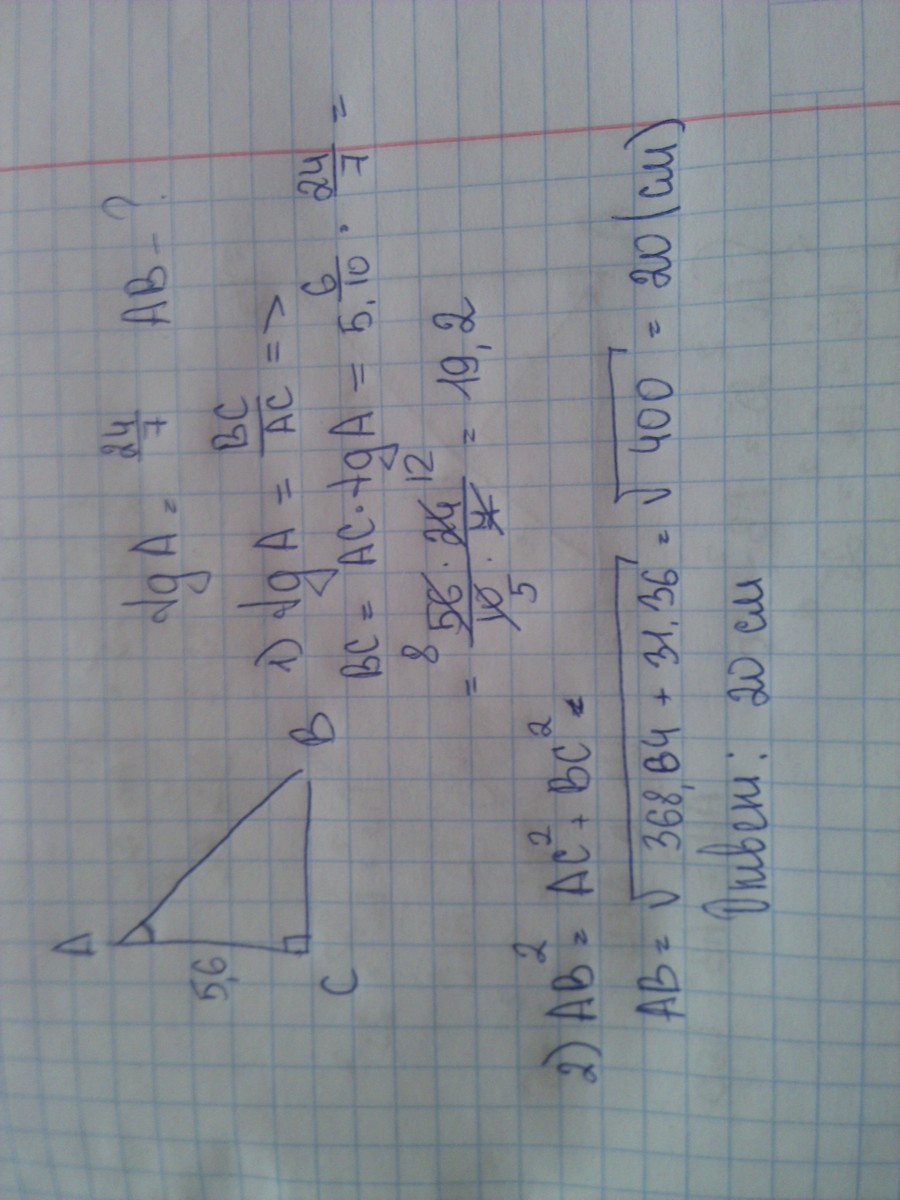 A
5,6
C
B
tg A = 24/7 AB - ?
1) tg A = BC/AC =>
BC = AC · tg A = 5,6/10 · 24/7 =
= 8 56 · 24 12 / 10 5 · 7 = 19,2
2) AB² = AC² + BC² =
AB = √368,84 + 31,36 = √400 = 20 (см)
Ответ: 20 см